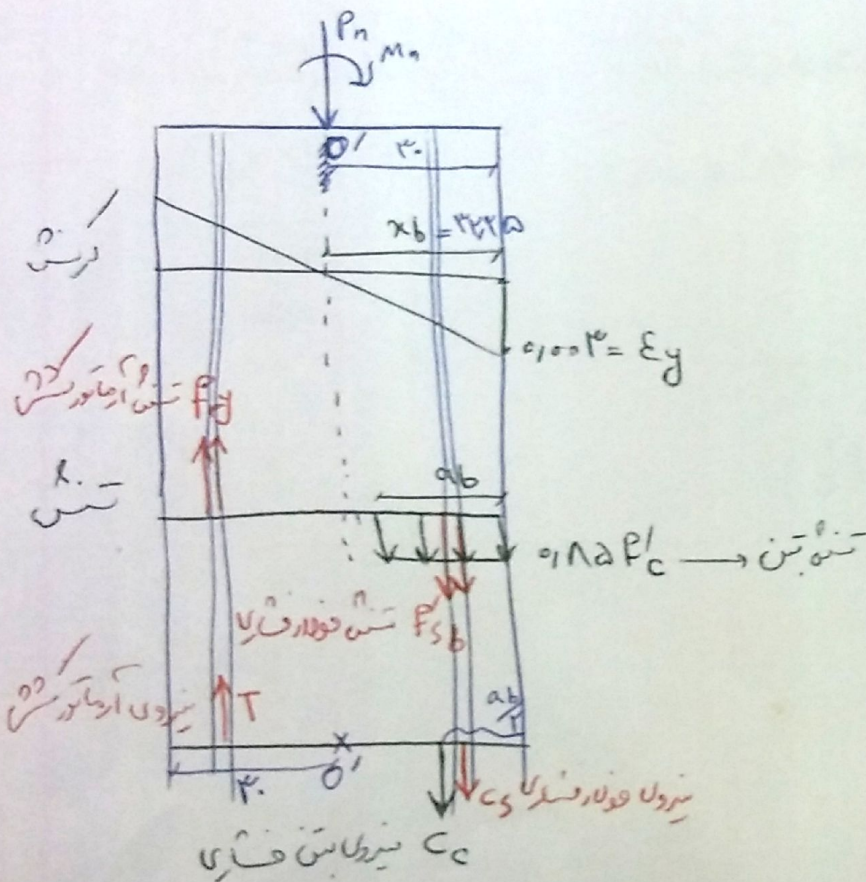 Pn
Mn
O′
۳۰
xb = ۳۲٫۲۵
کرنش
۰٫۰۰۳ = εy
تنش آرماتور کششی fy
تنش
ab
۰٫۸۵ f′c → تنش بتن
تنش فولاد فشاری f′sb
نیروی آرماتور کششی T
ab/۲
۳۰
O′
Cs نیروی فولاد فشاری
نیروی بتن فشاری Cc